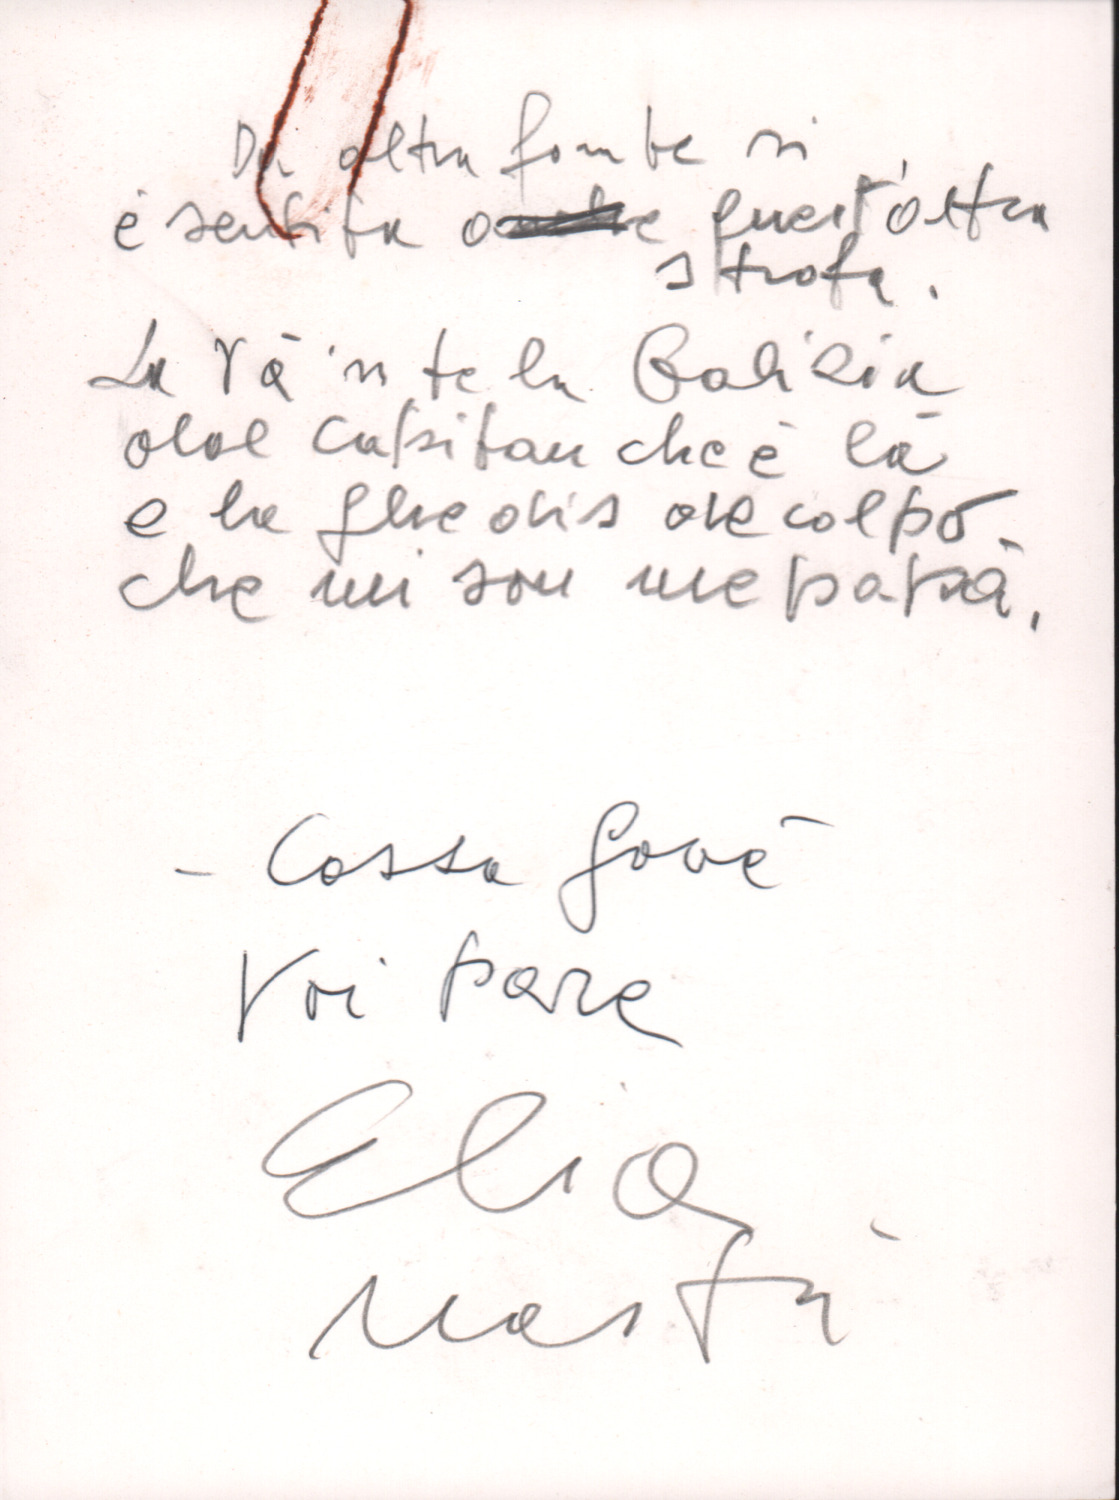 Da altra fonte si
è sentita quest'altra
strofa.
La và 'n te la Galizia
dal Capitan che è là
e la ghe dis de colpo
che mi son me papà.
- Cossa gavè
Voi pare
Elia